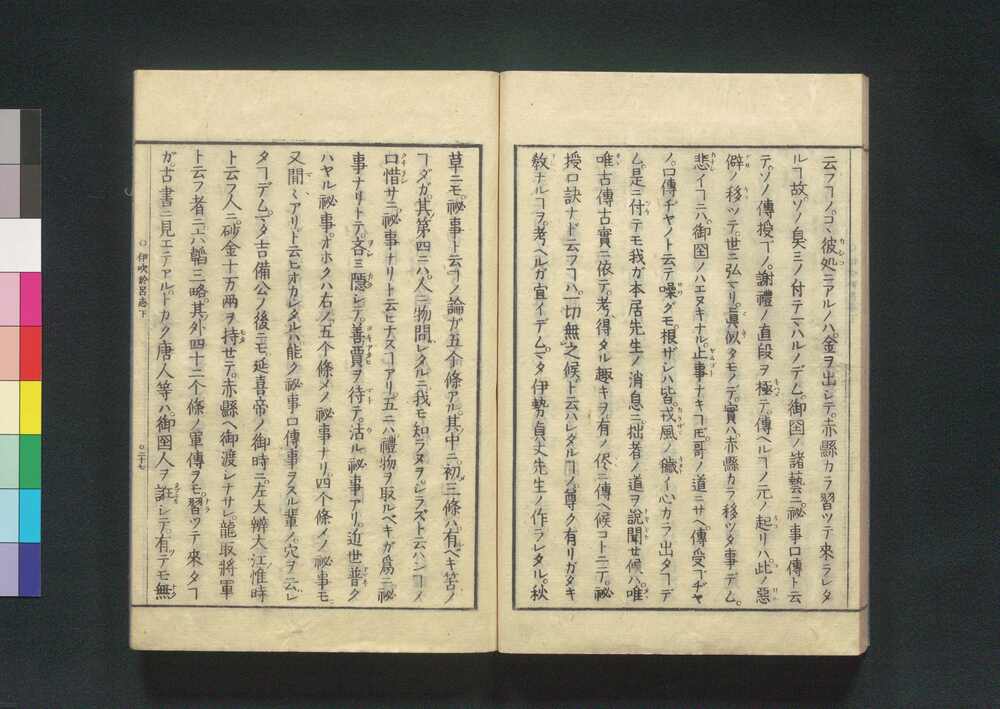 云フヿノ。コヽ彼処ニアルノハ。金ヲ出シテ。赤縣カラ習ツテ來ラレタ
ルヿ故。ソノ臭ミノ付テマハルノデム。御国ノ諸藝ニ。祕事口傳ト云
テ。ソノ傳授ヿノ。謝禮ノ直段ヲ極テ。傳ヘルヿノ元ノ起リハ。此ノ惡
僻ノ移ツテ。世ニ弘マリ。眞似タモノデ。實ハ赤縣カラ移ツタ事デム。
悲イヿニハ。御国ノハエヌキナル。止事ナキヿ𪜈。哥ノ道ニサヘ。傳受ヿヂヤ
ノ。口傳ヂヤノト云テ噪グモ。根ザシハ皆。戎風ノ穢イ心カラ出タヿデ
ム。是ニ付テモ我ガ本居先生ノ消息ニ。拙者ノ道ヲ說聞セ候ハ。唯
唯古傳古實ニ依テ。考得タル趣キヲ有ノ侭ニ傳ヘ候コトニテ。祕
授口訣ナド云フヿハ。一切無之候。ト云ハレタルヿノ。尊ク有リガタキ
敎ナルヿヲ。考ヘルガ宜イデム。マタ伊勢貞丈先生ノ作ラレタル。秋
草ニモ。祕事ト云フノ論ガ五个條アル。其中ニ。初三條ハ。有ベキ筈ノ
ヿダガ。其第四ニハ。人ニ物問レタルニ。我モ知ラヌヲ。シラズト云ハンヿノ
口惜サニ。祕事ナリト云ヒナスヿアリ。五ニハ禮物ヲ取ルベキガ爲ニ。祕
事ナリトテ。吝ミ隱シテ。善賈ヲ待テ。沽ル祕事アリ。近世普ク
ハヤル祕事。オホクハ右ノ五个條メノ祕事ナリ。四个條メノ祕事モ
又間〻アリ。ト云ヒオカレタルハ。能ク祕事口傳事ヲスル輩ノ。穴ヲ云レ
タヿデム。マタ吉備公ノ後ニモ。延喜帝ノ御時ニ。左大辨大江惟時
ト云フ人ニ。砂金十万兩ヲ持セテ。赤縣ヘ御渡シナサレ。龍取將軍
ト云フ者ニ。六韜三略。其外四十二个條ノ軍傳ヲモ。習ツテ來タヿ
ガ。古書ニ見エテアルド。カク唐人等ハ。御国人ヲ誑シテ。有テモ無
伊吹於呂志下
二十七